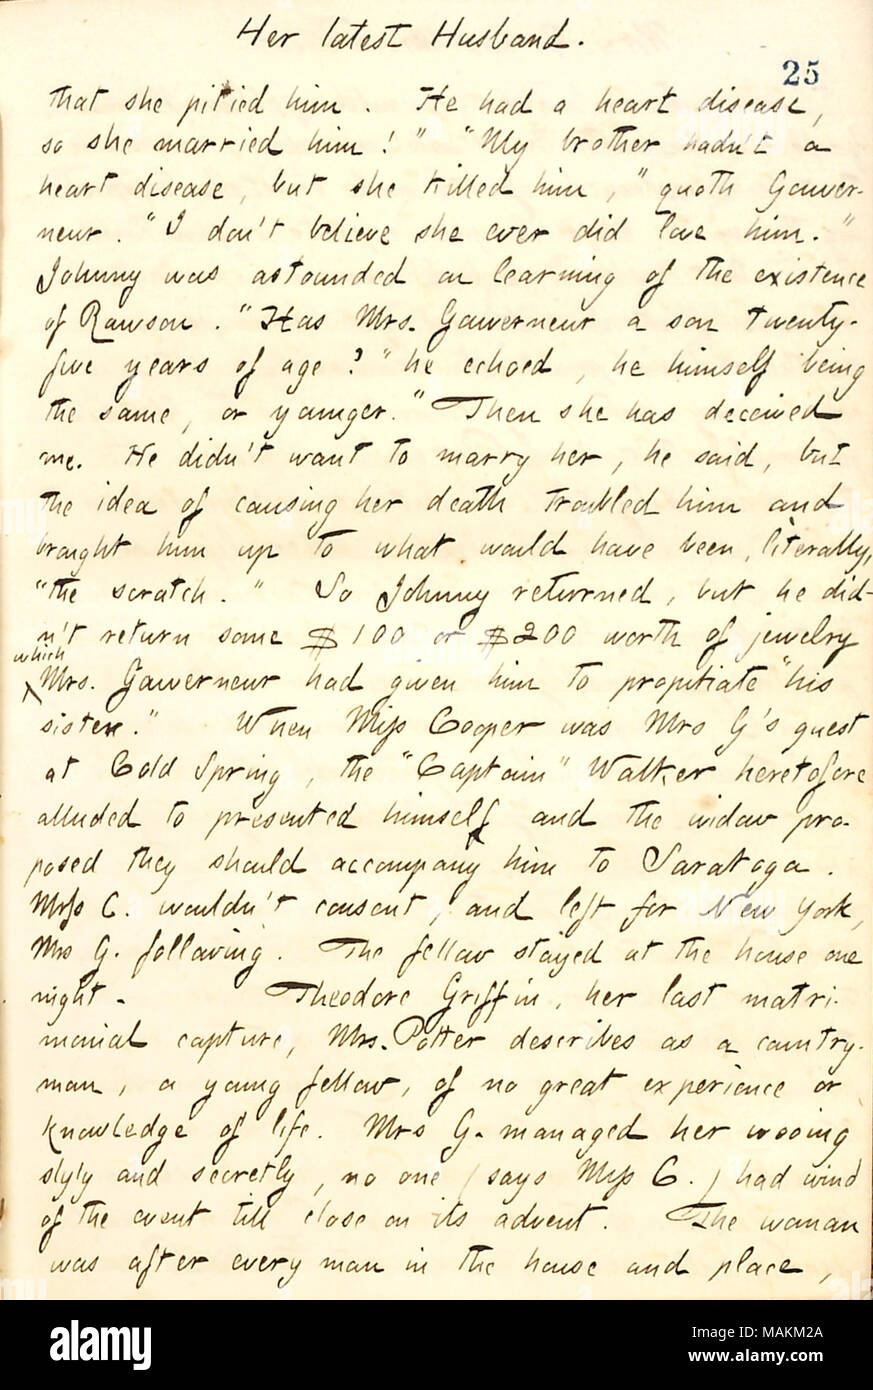 Her latest Husband.
25
that she pitied him. He had a heart disease,
so she married him!" "My brother hadn't a
heart disease, but she killed him," quoth Gouver-
neur. "I don't believe she ever did love him."
Johnny was astounded on learning of the existence
of Rawson. "Has Mrs. Gouverneur a son twenty-
five years of age?" he echoed, he himself being
the same, or younger." Then she has deceived
me. He didn't want to marry her, he said, but
the idea of causing her death troubled him and
brought him up to what would have been, literally,
"the scratch." So Johnny returned, but he did-
n't return some $100 or $200 worth of jewelry
which
Mrs. Gouverneur had given him to propitiate "his
sister." When Miss Cooper was Mrs G's guest
at Cold Spring, the "Captain" Walker heretofore
alluded to presented himself and the widow pro-
posed they should accompany him to Saratoga.
Miss C. wouldn't consent, and left for New York,
Mrs G. following. The fellow stayed at the house one
night. Theodore Griffin, her last matri-
monial capture, Mrs. Potter describes as a country-
man, a young fellow, of no great experience or
knowledge of life. Mrs G. managed her wooing
slyly and secretly, no one (says Miss C.) had wind
of the event till close on its advent. The woman
was after every man in the house and place,
alamy
Image ID: MAKM2A
www.alamy.com